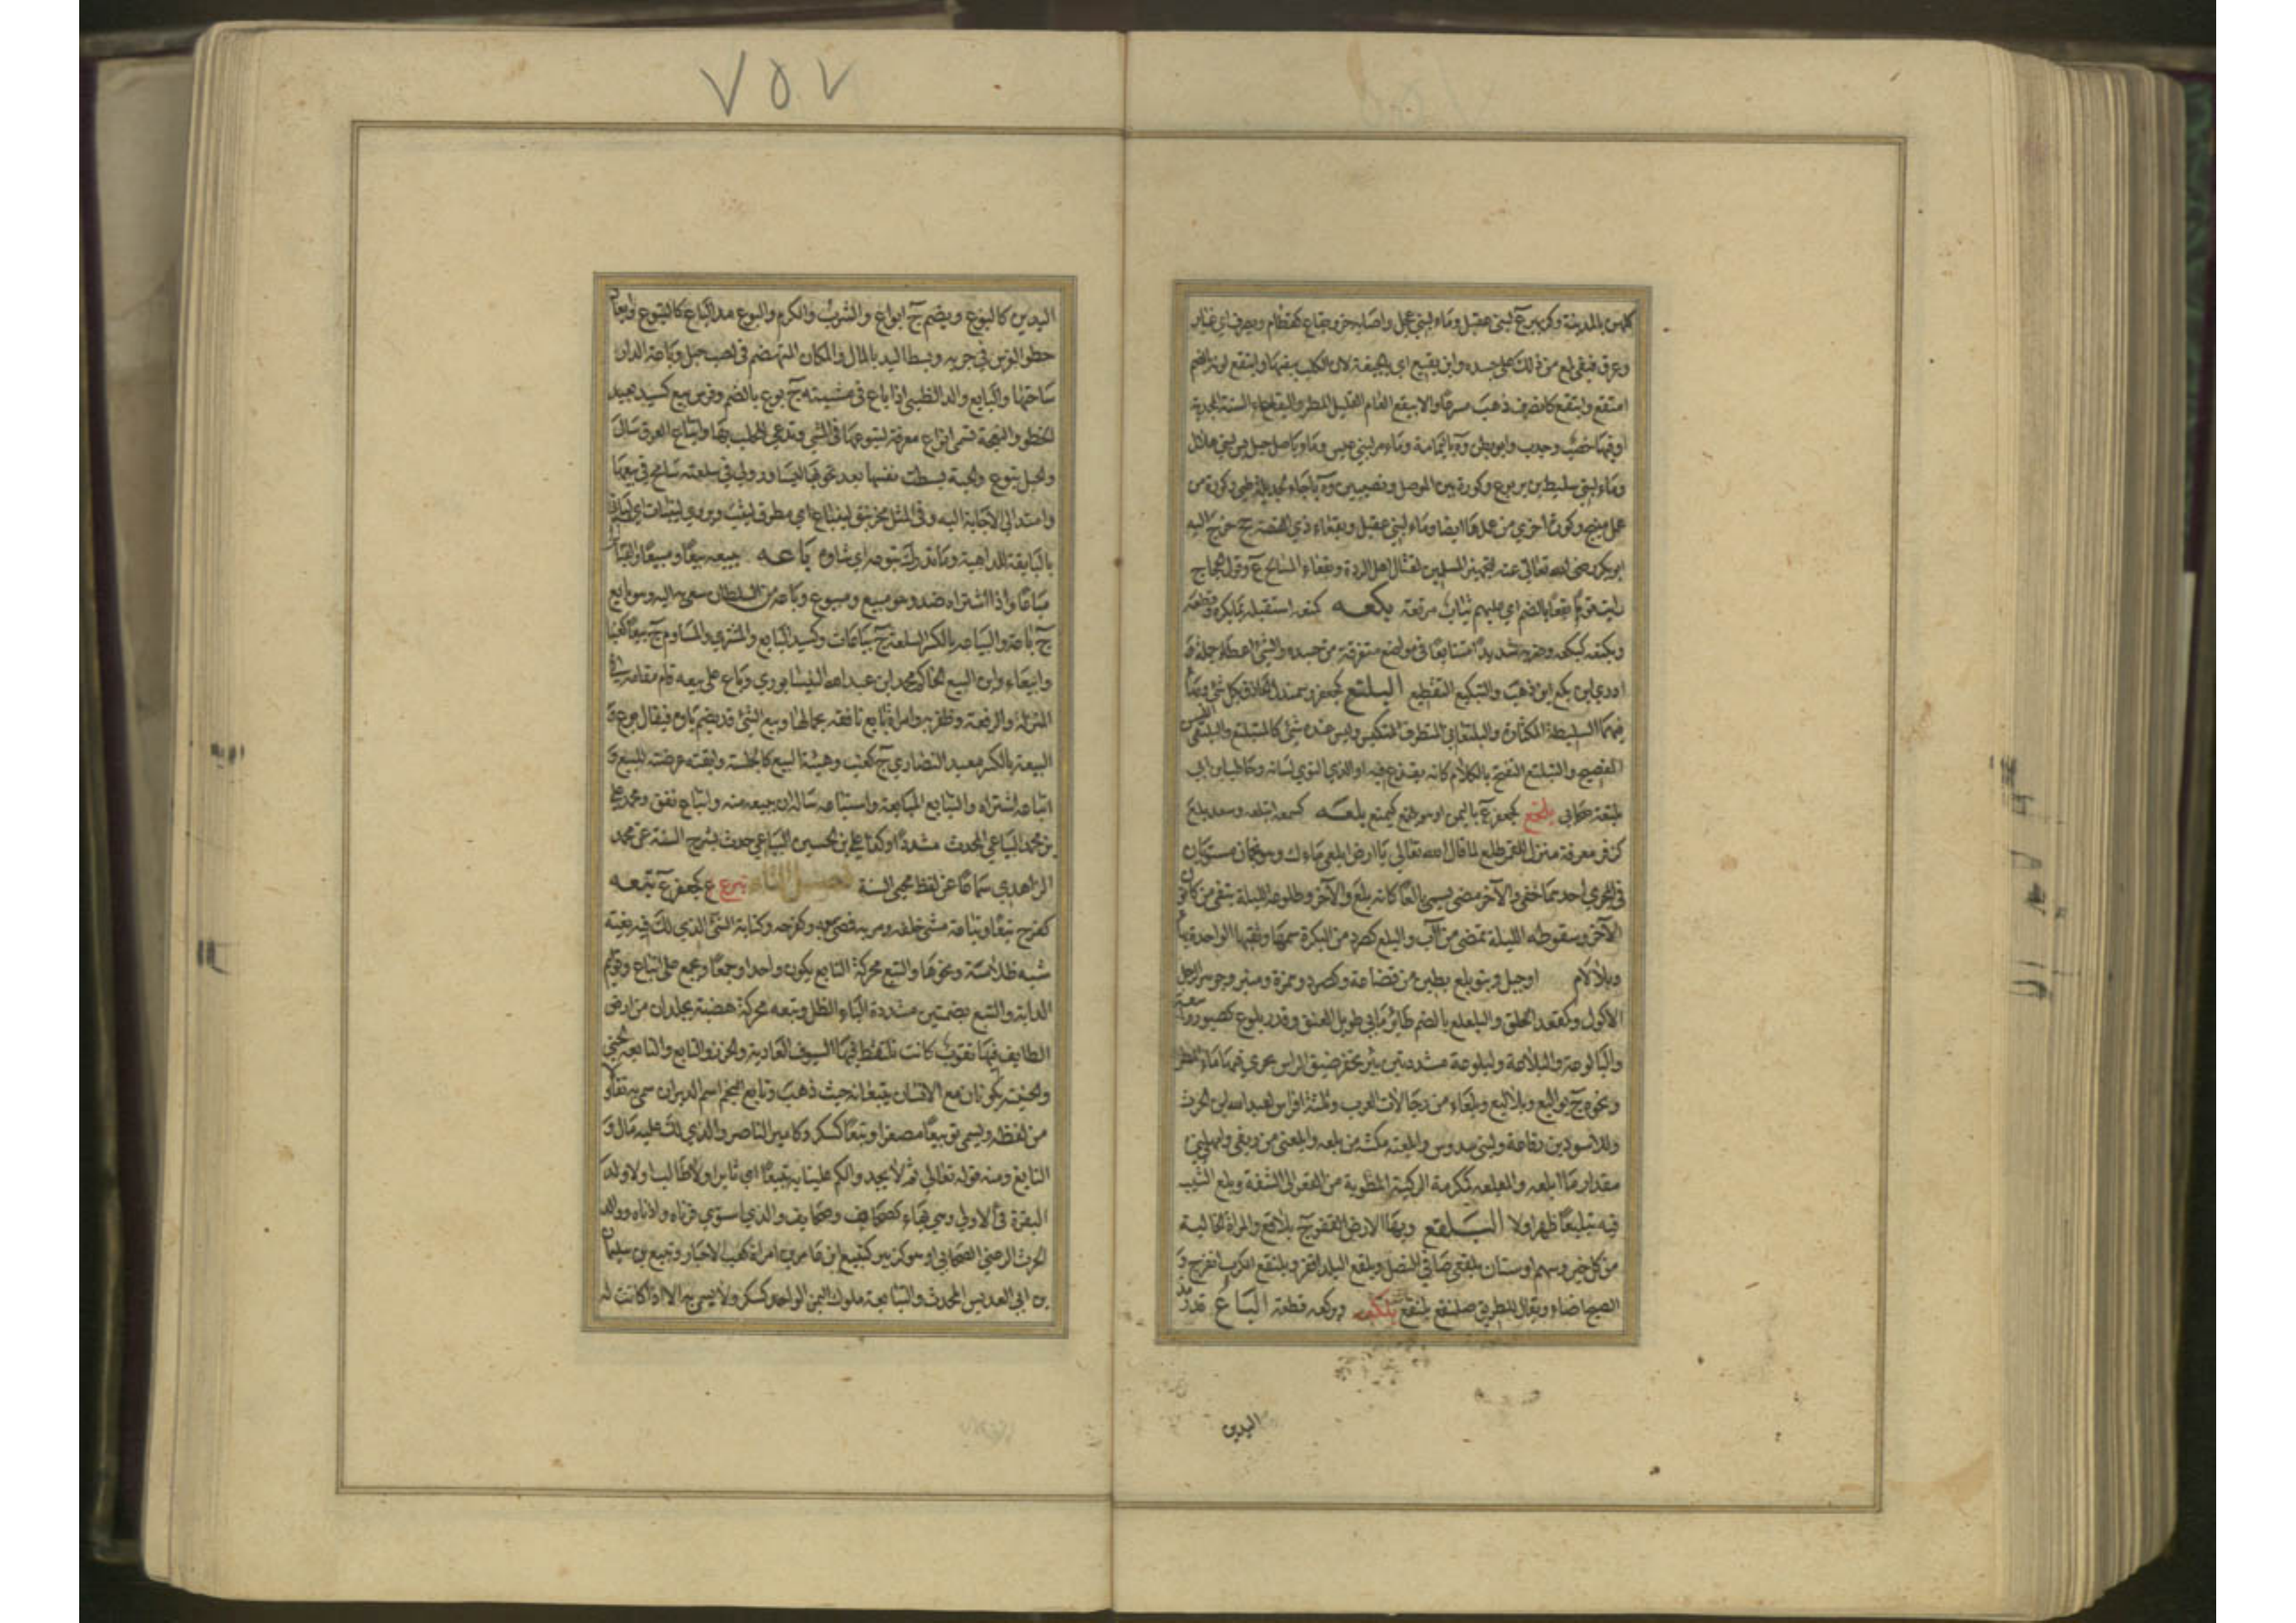 كلبس بالمدينة وكزبيرع لبني عقيل وماء لبني عجل واصابه خرء بقاع كقطام ويصرف اي غبار
وعرق فبقي لمع من ذلك على جسده وابن بقيع اي الجيفة لان الكلب يبقيها وابتقع لونه بالضم
امتقع وانبقع كانصرف ذهب مسرعا والابيقع العام القليل المطر والبقعاء السنة المجدبة
او فيها خصب وجدب وابو بطن وة باليمامة وماء مر لبني عبس وماء باصل جبل بس لبني هلال
وماء لبني سليط بن يربوع وكورة بين الموصل ونصيبين وة باجاء لجديلة طيئ وكورة من
عمل منبج وكورة اخرى من عملها ايضا وماء لبني عقيل وبقعاء ذي القصة ع خرج اليه
ابو بكر رضي الله تعالى عنه لتجهيز المسلمين لقتال اهل الردة وبقعاء المسالح ع وقول الحجاج
رايت قوما بقعا بالضم اي عليهم ثياب مرقعة بكعه كمنعه استقبله بما يكره وقطعه
وبكعه كبكعه وضربه شديدا متتابعا في مواضع متفرقة من جسده والشيء اعطاه جملة وما
ادري اين بكع اين ذهب والتبكيع التقطيع البلتع كجعفر وسمندل الحاذق بكل شيء وبهاء
فيهما السليطة المكثارة والبلتعاني المتظرف المتكيس وليس عنده شيء كالمتبلتع والبلتعي اللسن
الفصيح والتبلتع التفتح بالكلام كانه يقذع فيه او الذي لوى لسانه وحاطب بن ابي
بلتعة صحابي بلخع كجعفر ع باليمن او هو يلخع كيمنع بلعه كسمعه ابتلعه وسعد بلع
كزفر معرفة منزل للقمر طلع لما قال الله تعالى يا ارض ابلعي ماءك وهو نجمان مستويان
في المجرى احدهما خفي والآخر مضيء يسمى بالعا كانه بلع والآخر وطلوعه لليلة تبقى من كانون
الآخر وسقوطه لليلة تمضي من آب والبلع كصرد من البكرة سمها وثقبها الواحدة بهاء
وبلا لام د او جبل وبنو بلع بطين من قضاعة وكصرد وهمزة ومنبر وجوهر الرجل
الاكول وكمقعد الحلق والبلعلع بالضم طائر مائي طويل العنق وقدر بلوع كصبور واسعة
والبالوعة والبلاعة والبلوعة مشددتين بئر يحفر ضيق الراس يجري فيها ماء المطر
ونحوه ج بواليع وبلاليع وبلعاء من رجالات العرب وثلثة افراس لعبد الله بن الحرث
وللاسود بن رفاعة ولبني سدوس وابلعته مكنته من بلعه وابلعني من ريقي وامهلني
مقدار ما ابلعه والمبلعة كمكرمة الركية المطوية من القعر الى الشفة وبلع الشيب
فيه تبليعا ظهر اولا البلقع وبهاء الارض القفر ج بلاقع والمراة الخالية
من كل خير وسهم او سنان بلقعي صافي النصل وبلقع البلد اقفر وابلنقع الكرب انفرج و
الصبح اضاء ويقال للطريق صلنقع بلنقع بلكعه وبركعه قطعه الباع قدر مد
اليدين
٧٥٧
اليدين كالبوع ويضم ج ابواع والشرف والكرم والبوع مد الباع كالتبوع وابعاد
خطو الفرس في جريه وبسط اليد بالمال والمكان المنهضم في لصب جبل وباعة الدار
ساحتها والبايع ولد الظبي اذا باع في مشيته ج بوع بالضم وفرس بيع كسيد بعيد
الخطو والنعجة تسمى ابواع معرفة لتبوعها في المشي وتدعى للحلب بها وانباع العرق سال
والحبل يتبوع والحية بسطت نفسها بعد تحويها لتساور ولي في سلعته سامح في بيعها
وامتد الى الاجابة اليه وفي المثل مخرنبق لينباع اي مطرق ليثب ويروى لينباق اي لياتي
بالبايقة للداهية وما تدرك تبوعه اي شاوه باعه يبيعه بيعا ومبيعا والقياس
مباعا واذا اشتراه ضد وهو مبيع ومبيوع وباعه من السلطان سعى به اليه وهو بايع
ج باعة والبياعة بالكسر السلعة ج بياعات وكسيد البايع والمشتري والمساوم ج بيعا كعنبا
وابيعاء وابن البيع الحاكم محمد ابن عبد الله النيسابوري وباع على بيعه قام مقامه في
المنزلة والرفعة وظفر به وامراة بايع نافقة بجمالها وبيع الشيء قد يضم باؤه فيقال بوع و
البيعة بالكسر معبد النصارى ج كعنب وهيئة البيع كالجلسة وابعته عرضته للبيع و
ابتاعه اشتراه والتبايع المبايعة واستباعه سأله ان يبيعه منه وانباع نفق ومحمد بن علي
بن محمد البياعي المحدث مشددا وكذا علي بن الحسين البياعي حدث بشرح السنة عن محمد
الزاهدي سماعا عن لفظ محيي السنة فصل التاء تبرع ع كجعفر ع تبعه
كفرح تبعا وتباعة مشى خلفه ومر به فمضى معه وكفرحة وكتابة الشيء الذي لك فيه بغية
شبه ظلامة ونحوها والتبع محركة التابع يكون واحدا وجمعا ويجمع على اتباع وقوايم
الدابة والتبع بضمتين مشددة الباء الظل وتبعة محركة هضبة بجلدان من ارض
الطايف فيها نقوب كانت تلتقط فيها السيوف العادية والخرز والتابع والتابعة الجني
والجنية يكونان مع الانسان يتبعانه حيث ذهب وتابع النجم اسم الدبران سمي به تفاؤلا
من لفظه ويسمى تويبعا مصغرا وتبعا كسكر وكامير الناصر والذي لك عليه مال و
التابع ومنه قوله تعالى ثم لا تجدوا لكم علينا به تبيعا اي ثايرا ولا طالبا وولد
البقرة في الاولى وهي بهاء ج كصحاف وصحايف والذي استوى قرناه واذناه ووالد
الحرث الرعيني الصحابي او هو كزبير كتبيع ابن عامر بن امراة كعب الاحبار وتبيع بن سليمان
بن ابي العديس المحدث والتبابعة ملوك اليمن الواحد كسكر ولا يسمى به الا اذا كانت له